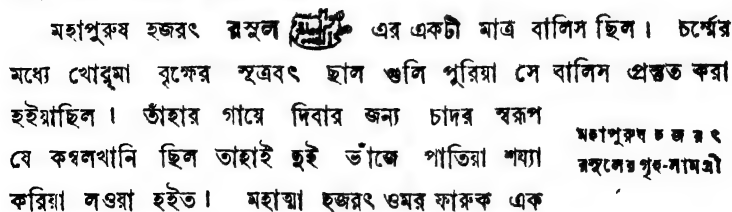 মহাপুরুষ হজরৎ রসুল ﷺ এর একটী মাত্র বালিস ছিল। চর্ম্মের
মধ্যে খোর্ম্মা বৃক্ষের সূত্রবৎ ছাল গুলি পুরিয়া সে বালিস প্রস্তুত করা
হইয়াছিল। তাঁহার গায়ে দিবার জন্য চাদর স্বরূপ
যে কম্বলখানি ছিল তাহাই দুই ভাঁজে পাতিয়া শয্যা
করিয়া লওয়া হইত। মহাত্মা হজরৎ ওমর ফারুক এক
মহাপুরুষ হজরৎ
রসুলের গৃহ-সামগ্রী